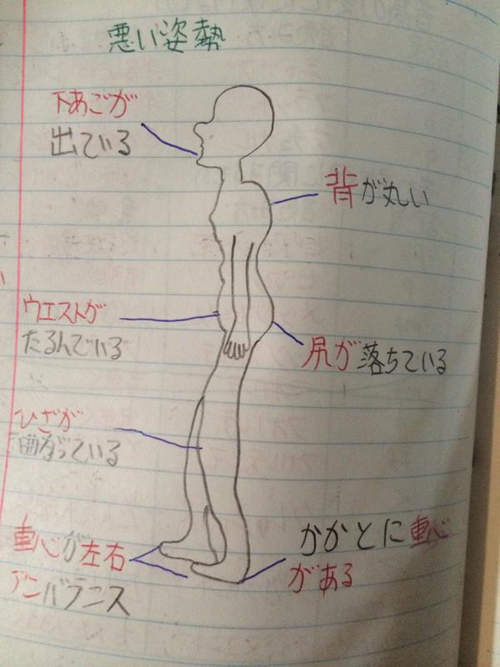 悪い姿勢
下あごが
出ている
背が丸い
ウエストが
たるんでいる
尻が落ちている
ひざが
曲がっている
重心が左右
アンバランス
かかとに重心
がある